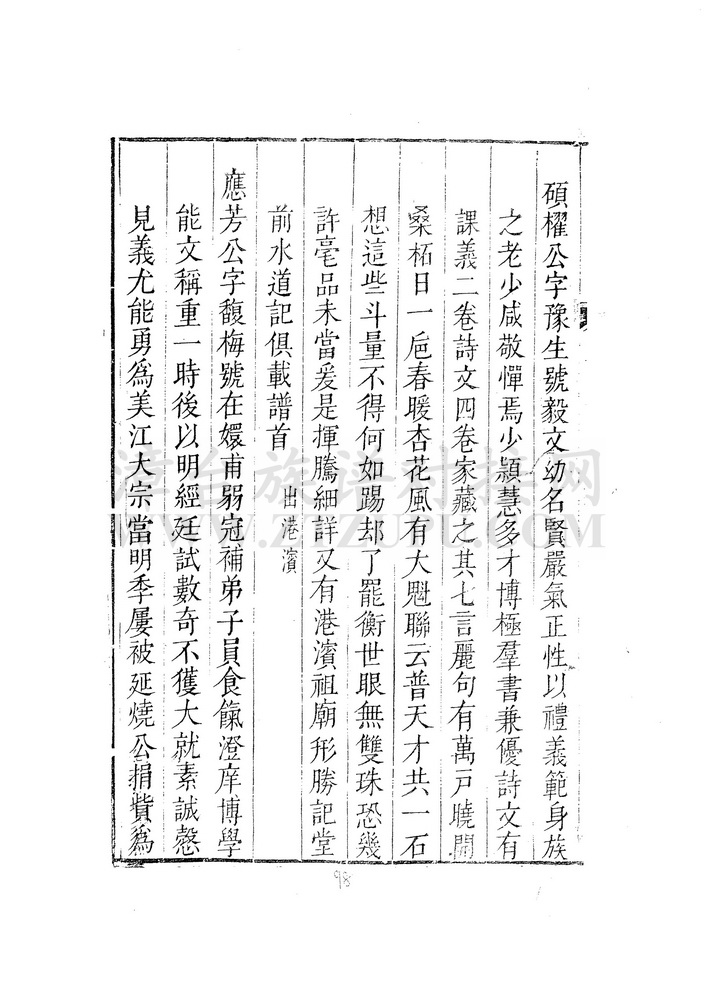 碩櫂公字豫生號毅文幼名賢嚴氣正性以禮義範身族
之老少咸敬憚焉少穎慧多才博極羣書兼優詩文有
課義二卷詩文四卷家藏之其七言麗句有萬戸曉開
桑柘日一巵春暖杏花風有大魁聯云普天才共一石
想這些斗量不得何如踢却了罷衡世眼無雙珠恐幾
許毫品未當爰是揮騰細詳又有港濱祖廟形勝記堂
前水道記俱載譜首
出港濱
應芳公字馥梅號在嬛甫弱冠補弟子員食餼澄庠博學
能文稱重一時後以明經廷試數奇不獲大就素誠慤
見義尤能勇為美江大宗當明季屢被延燒公捐貲為
漳台族谱对接网
WWW.ZTZUPU.COM
98